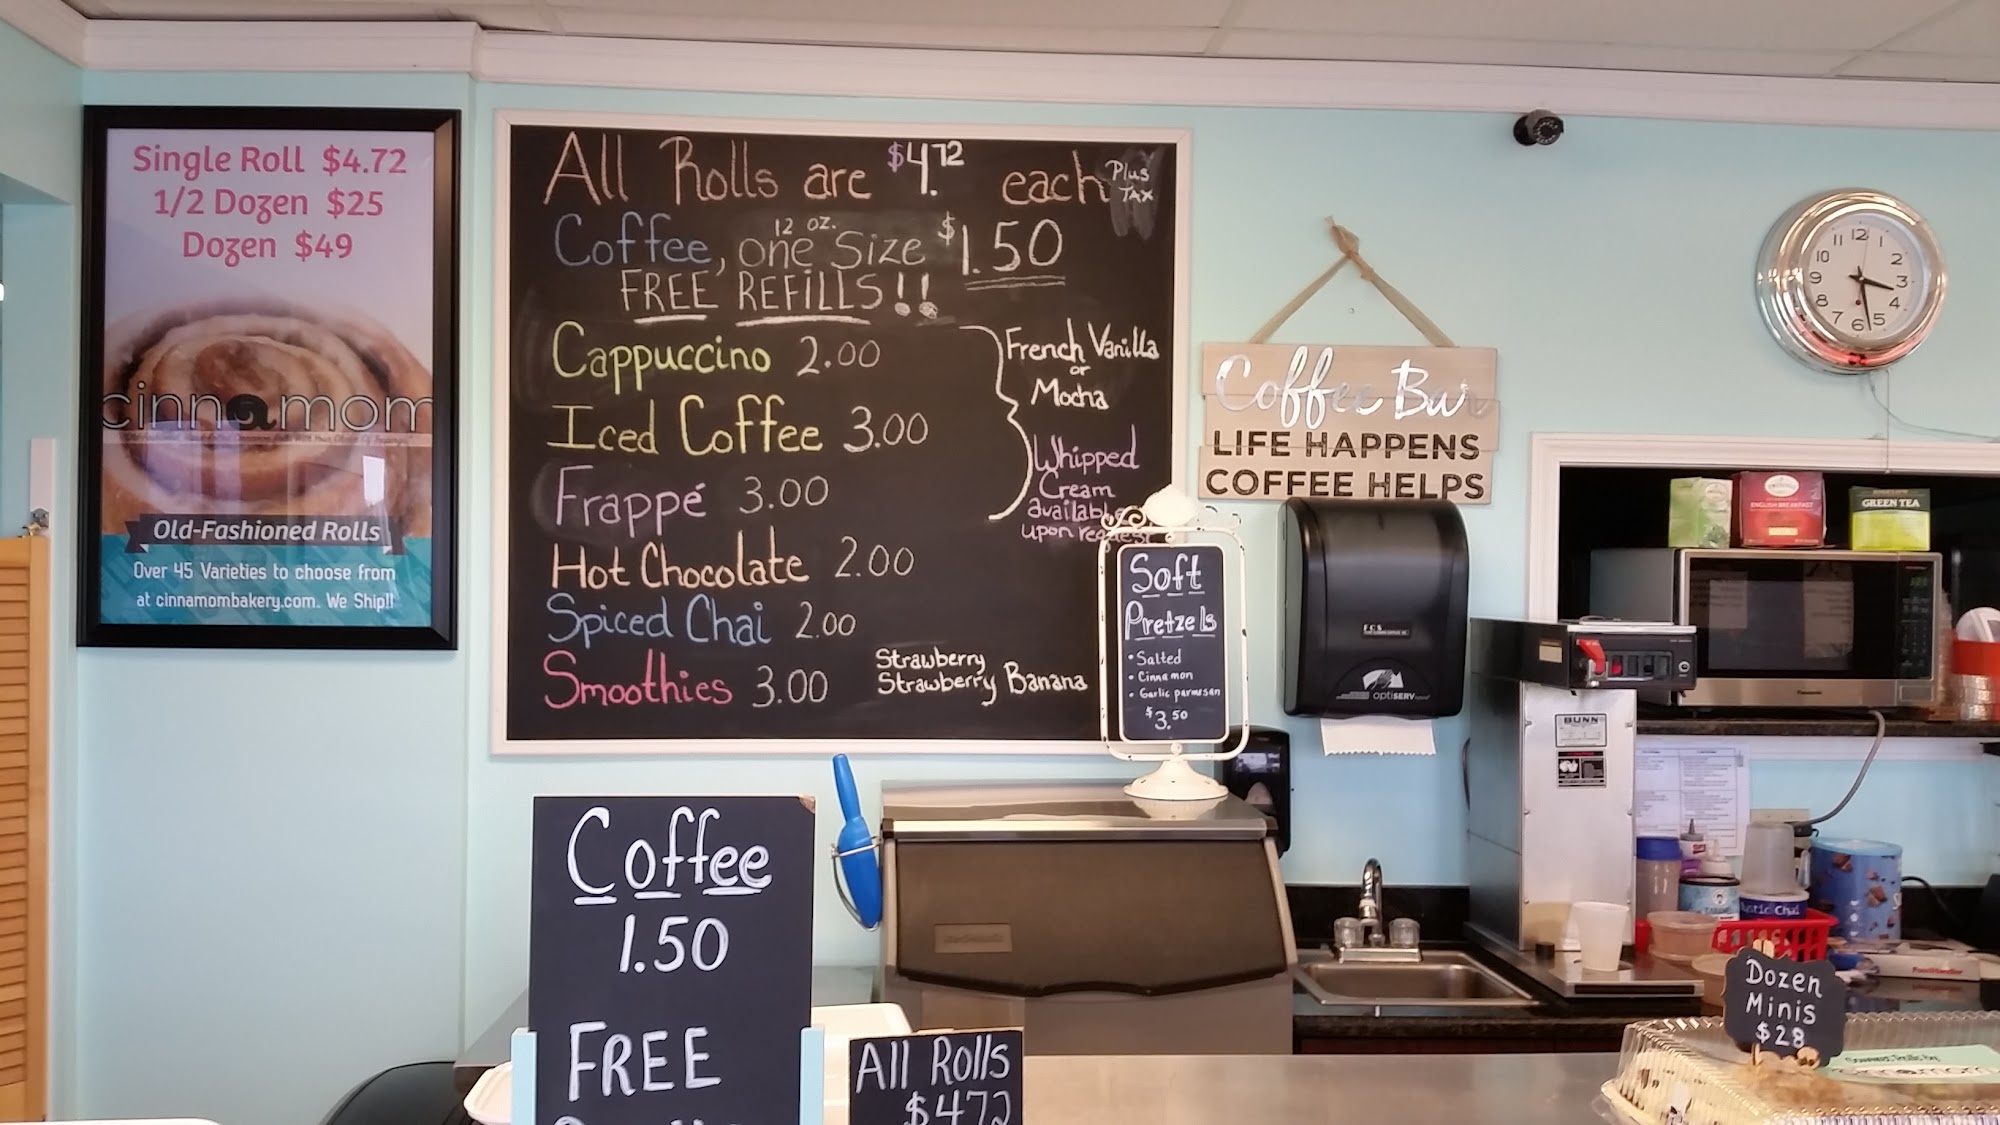 Single Roll $4.72
1/2 Dozen $25
Dozen $49
cinnamom
Old-Fashioned Rolls
Over 45 Varieties to choose from
at cinnamombakery.com. We Ship!!
All Rolls are $4.72 each Plus TAX
Coffee, 12 oz. one size $1.50
FREE REFILLS!!
Cappuccino 2.00
Iced Coffee 3.00
Frappé 3.00
Hot Chocolate 2.00
Spiced Chai 2.00
Smoothies 3.00
French Vanilla
or
Mocha
Whipped
Cream
available
upon request
Strawberry
Strawberry Banana
Soft
Pretzels
• Salted
• Cinnamon
• Garlic parmesan
$3.50
Coffee Bar
LIFE HAPPENS
COFFEE HELPS
12 1 2 3 4 5 6 7 8 9 10 11
optiSERV
ENGLISH BREAKFAST
GREEN TEA
Panasonic
BUNN
Coffee
1.50
FREE
All Rolls
$4.72
Dozen
Minis
$28